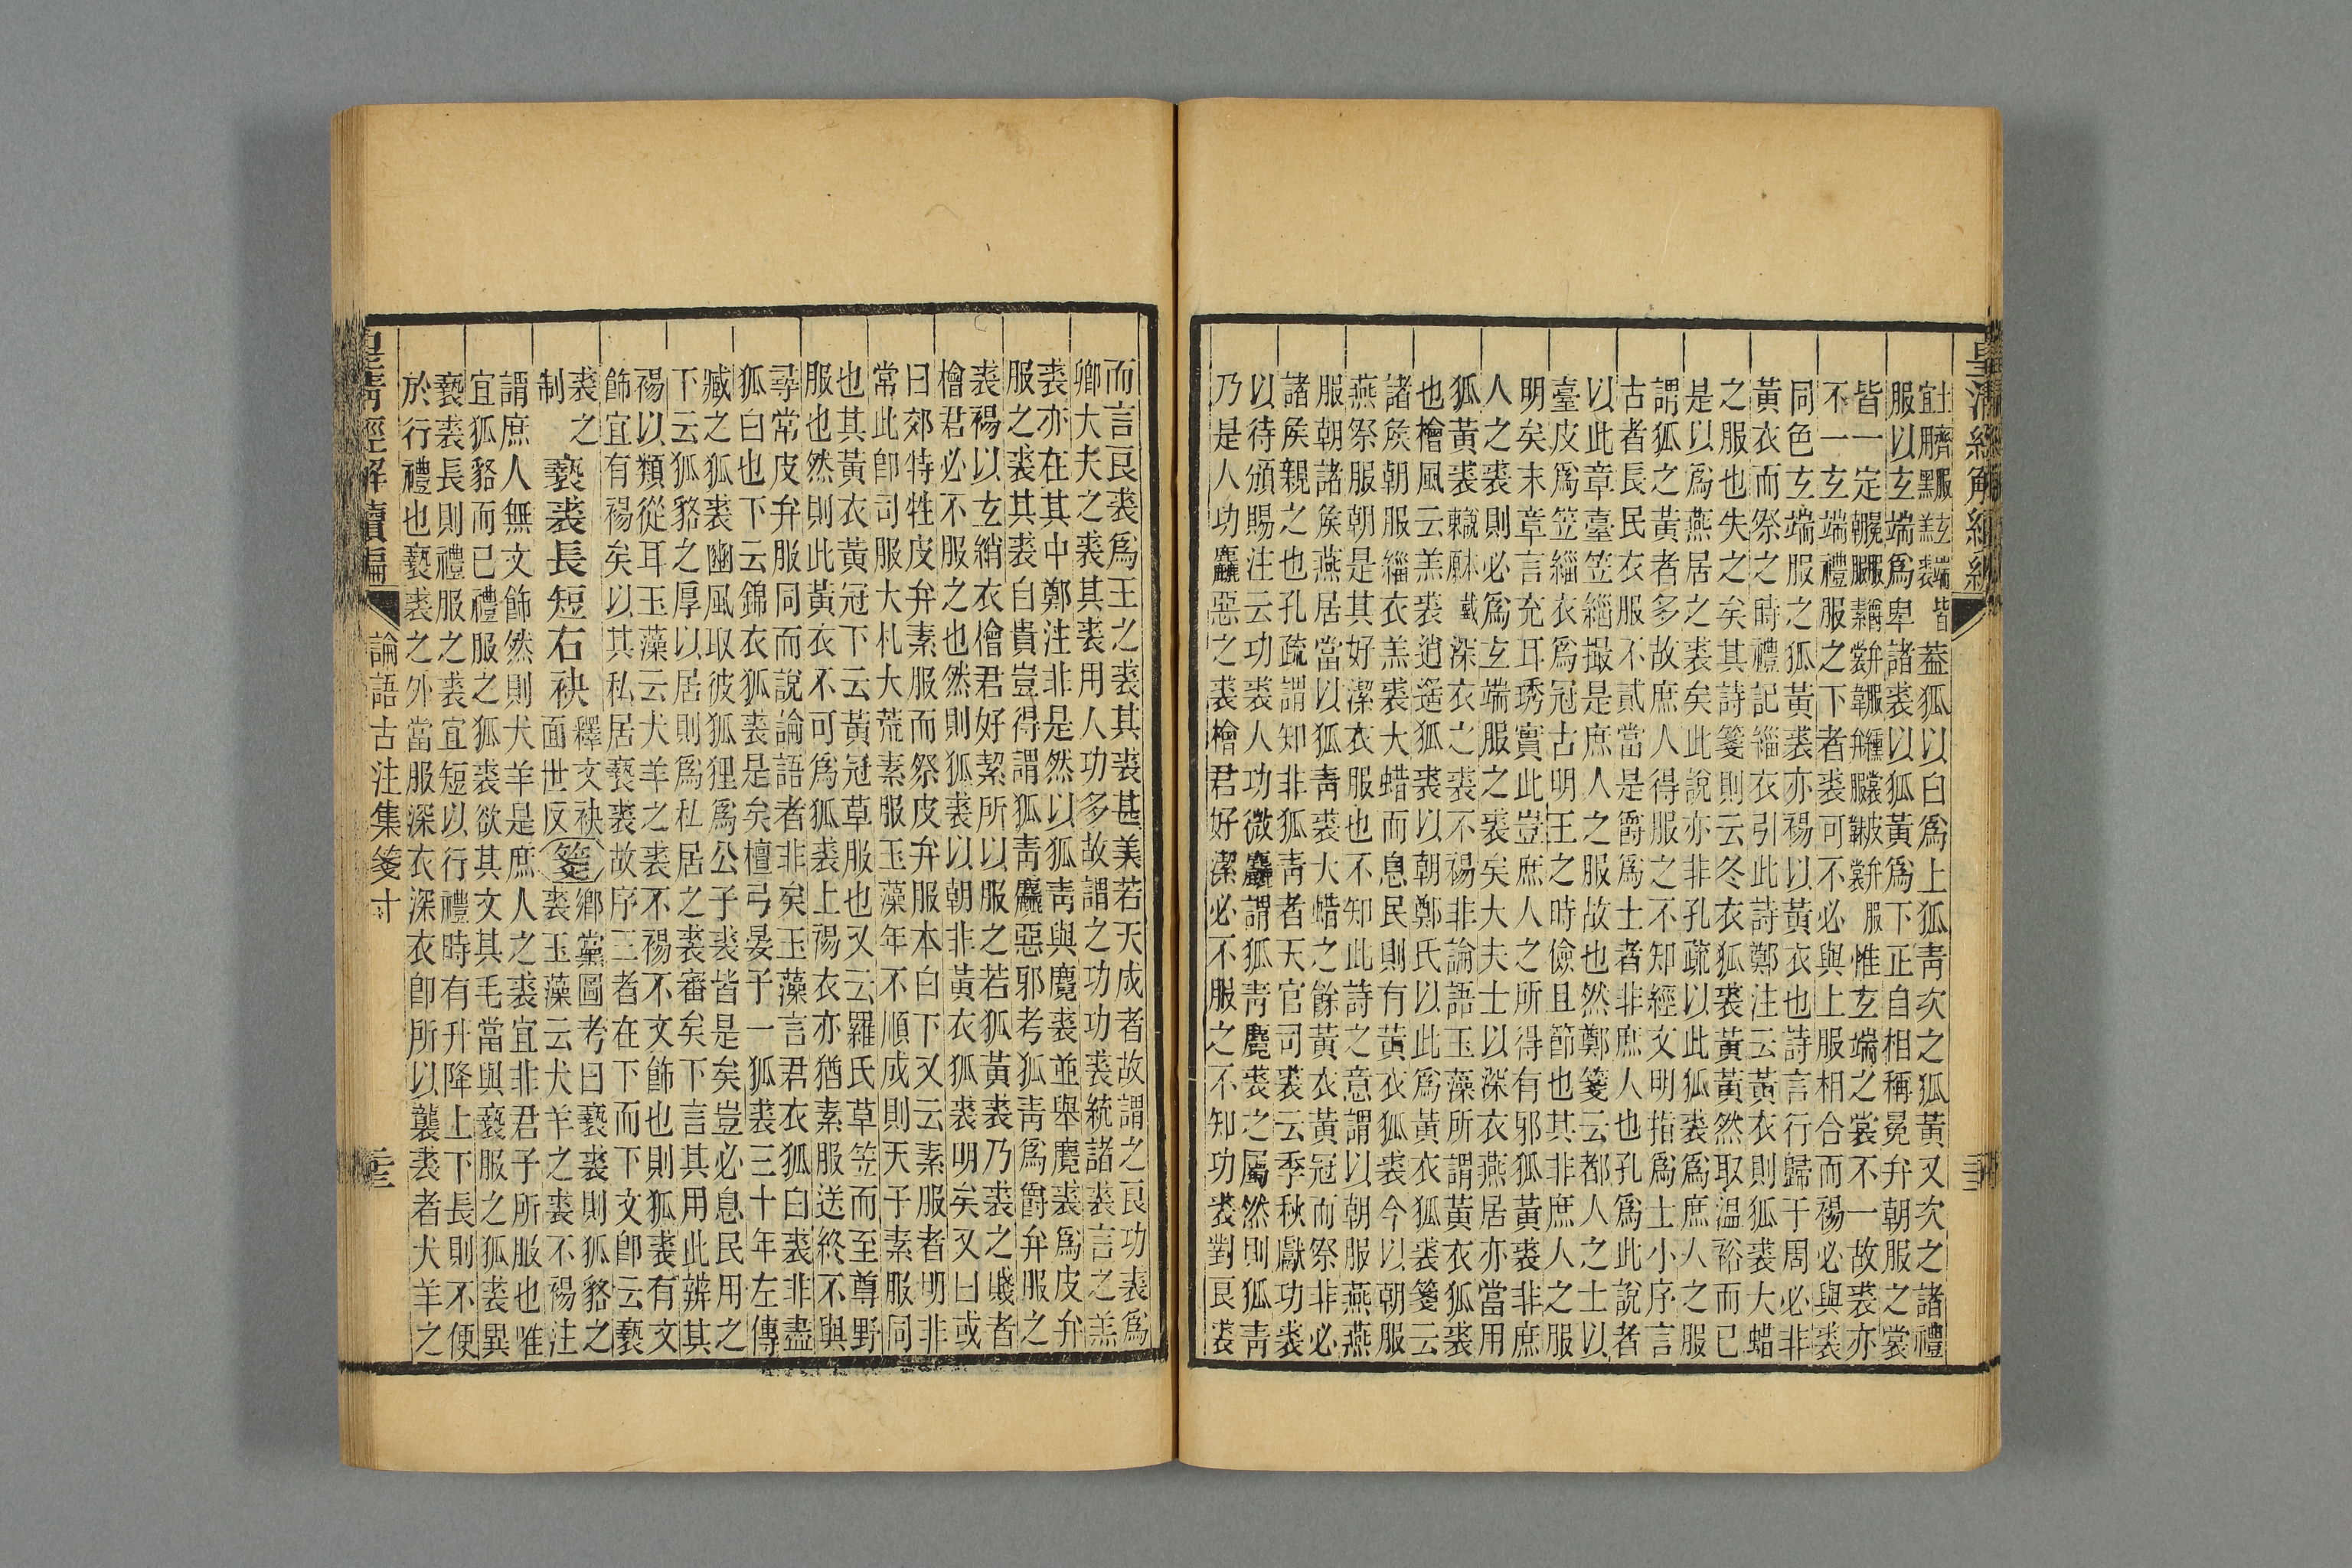 蓋狐以白爲上狐青次之狐黃又次之諸禮
服以玄端爲卑諸裘以狐黃爲下正自相稱冕弁朝服之裳
皆一定惟玄端之裳不一故裘亦
不一玄端禮服之下者裘可不必與上服相合而裼必與裘
同色玄端服之狐黃裘亦裼以黃衣也詩言行歸于周必非
黃衣而祭之時禮記緇衣引此詩鄭注云黃衣則狐裘大蜡
之服也失之矣其詩箋則云冬衣狐裘黃黃然取温裕而已
是以爲燕居之裘矣此說亦非孔疏以此狐裘爲庶人之服
謂狐之黃者多故庶人得服之不知經文明指爲士小序言
古者長民衣服不貳當是爵爲士者非庶人也孔爲此說者
以此章臺笠緇撮是庶人之服故也然鄭箋云都人之士以
臺皮爲笠緇衣爲冠古明王之時儉且節也其非庶人之服
明矣末章言充耳琇實此豈庶人之所得有邪狐黃裘非庶
人之裘則必爲玄端服之裘矣大夫士以深衣燕居亦當用
狐黃裘深衣之裘不裼非論語玉藻所謂黃衣狐裘
也檜風云羔裘逍遙狐裘以朝鄭氏以此爲黃衣狐裘箋云
諸矦朝服緇衣羔裘大蜡而息民則有黃衣狐裘今以朝服
燕祭服朝是其好潔衣服也不知此詩之意謂以朝服燕燕
服朝諸矦燕居當以狐青裘大蜡之餘黃衣黃冠而祭非必
諸矦親之也孔疏謂知非狐青者天官司裘云季秋獻功裘
以待頒賜注云功裘人功微麤謂狐青麑裘之屬然則狐青
乃是人功麤惡之裘檜君好潔必不服之不知功裘對良裘
而言良裘爲王之裘其裘甚美若天成者故謂之良功裘爲
卿大夫之裘其裘用人功多故謂之功功裘統諸裘言之羔
裘亦在其中鄭注非是然以狐青與麑裘並舉麑裘爲皮弁
服之裘其裘白貴豈得謂狐青麤惡邪考狐青爲爵弁服之
裘裼以玄綃衣儈君好絜所以服之若狐黃裘乃裘之賤者
檜君必不服之也然則狐裘以朝非黃衣狐裘明矣又曰或
曰郊特牲皮弁素服而祭皮弁服本白下又云素服者明非
常此卽司服大札大荒素服玉藻年不順成則天子素服同
也其黃衣黃冠下云黃冠草服也又云羅氏草笠而至尊野
服也然則此黃衣不可爲狐裘上裼衣亦猶素服送終不與
尋常皮弁服同而說論語者非矣玉藻言君衣狐白裘非盡
狐白也下云錦衣狐裘是矣檀弓晏子一狐裘三十年左傳
臧之狐裘豳風取彼狐狸爲公子裘皆是矣豈必息民用之
下云狐貉之厚以居則爲私居之裘審矣下言其用此辨其
裼以類從耳玉藻云犬羊之裘不裼不文飾也則狐裘有文
飾宜有裼矣以其私居褻裘故序三者在下而下文卽云褻
裘之
制
褻裘長短右袂釋文袂
面世反箋鄉黨圖考曰褻裘則狐貉之
裘玉藻云犬羊之裘不裼注
謂庶人無文飾然則犬羊是庶人之裘宜非君子所服也唯
宜狐貉而已禮服之狐裘欲其文其毛當與褻服之狐裘異
褻裘長則禮服之裘宜短以行禮時有升降上下長則不便
於行禮也褻裘之外當服深衣深衣卽所以襲裘者犬羊之
皇清經解續編
論語古注集箋十